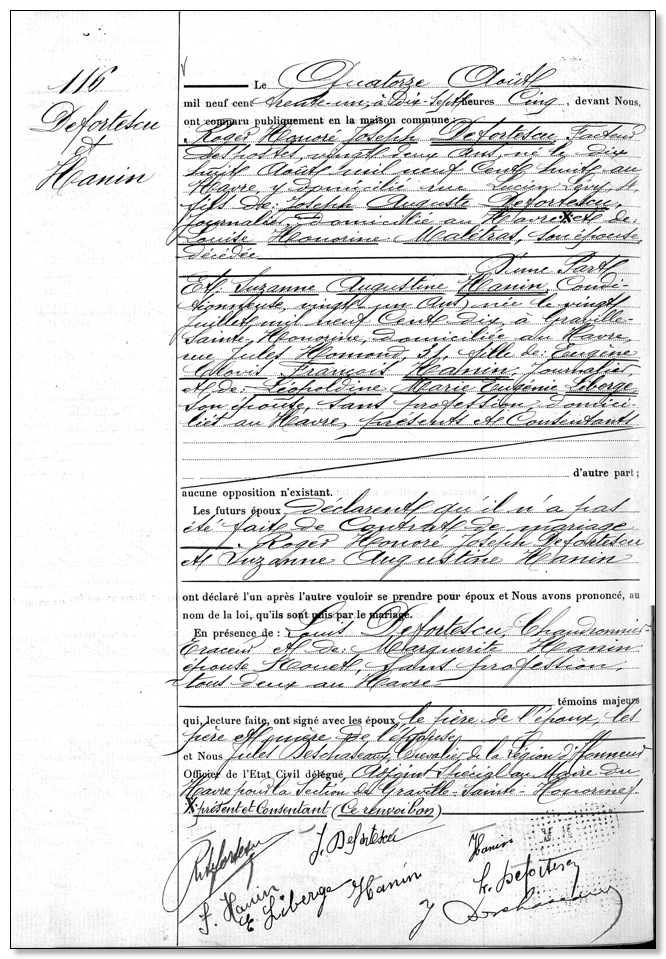 116
Defortescu
&
Hanin
Le Quatorze Août
mil neuf cent trente-un, à Dix-Sept heures Cinq, devant Nous,
ont comparu publiquement en la maison commune :
Roger Honoré Joseph Defortescu, Facteur
des postes, vingt deux ans, né le dix
huit Août mil neuf cent huit au
Havre, y domicilié rue Lucien Lévy, 4,
fils de: Joseph Auguste Defortescu,
journalier, domicilié au Havre X et de:
Louise Honorine Malétras, son épouse,
décédée
D'une Part
Et: Suzanne Augustine Hanin, Condi-
tionneuse, vingt un ans, née le vingt
Juillet mil neuf cent dix, à Graville-
Sainte-Honorine, domiciliée au Havre
rue Jules 37, fille de: Eugène
Clovis François Hanin, journalier
et de: Léopoldine Marie Eugénie Liberge
son épouse, sans profession, domici-
liés au Havre, présents et Consentants
d'autre part ;
aucune opposition n'existant.
Les futurs époux déclarent qu'il n'a pas
été fait de Contrat de mariage
Roger Honoré Joseph Defortescu
et Suzanne Augustine Hanin
ont déclaré l'un après l'autre vouloir se prendre pour époux et Nous avons prononcé, au
nom de la loi, qu'ils sont unis par le mariage.
En présence de : Louis Defortescu, Chaudronnier-
Traceur et de: Marguerite Hanin
épouse Houet, sans profession,
tous deux au Havre
témoins majeurs
qui, lecture faite, ont signé avec les époux, le père de l'époux, les
père et mère de l'épouse
et Nous Jules Deschaseaux, Chevalier de la Légion d'Honneur
Officier de l'Etat Civil délégué, Adjoint Spécial au Maire du
Havre pour la Section de Graville-Sainte-Honorine.
X présent et Consentant (Ce renvoi bon)
R Defortescu
J. Defortescu
Hanin
S. Hanin
E. Liberge
Hanin
L. Defortescu
J Deschaseaux